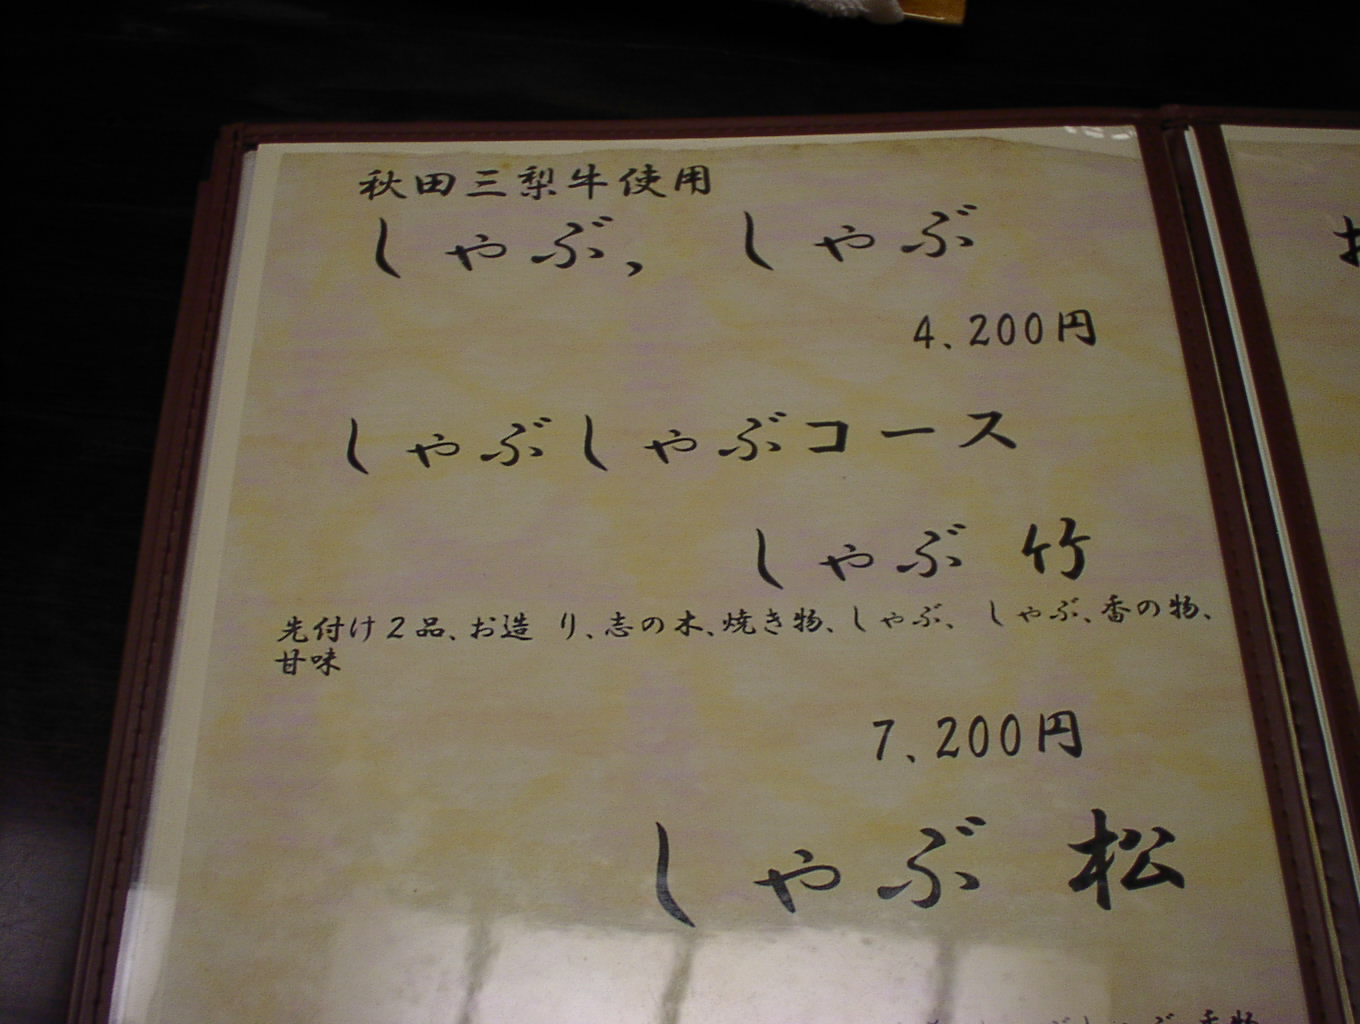 秋田三梨牛使用
しゃぶ，しゃぶ
4、200円
しゃぶしゃぶコース
しゃぶ 竹
先付け２品、お造 り、志の木、焼き物、しゃぶ、 しゃぶ、香の物、
甘味
7、200円
しゃぶ 松